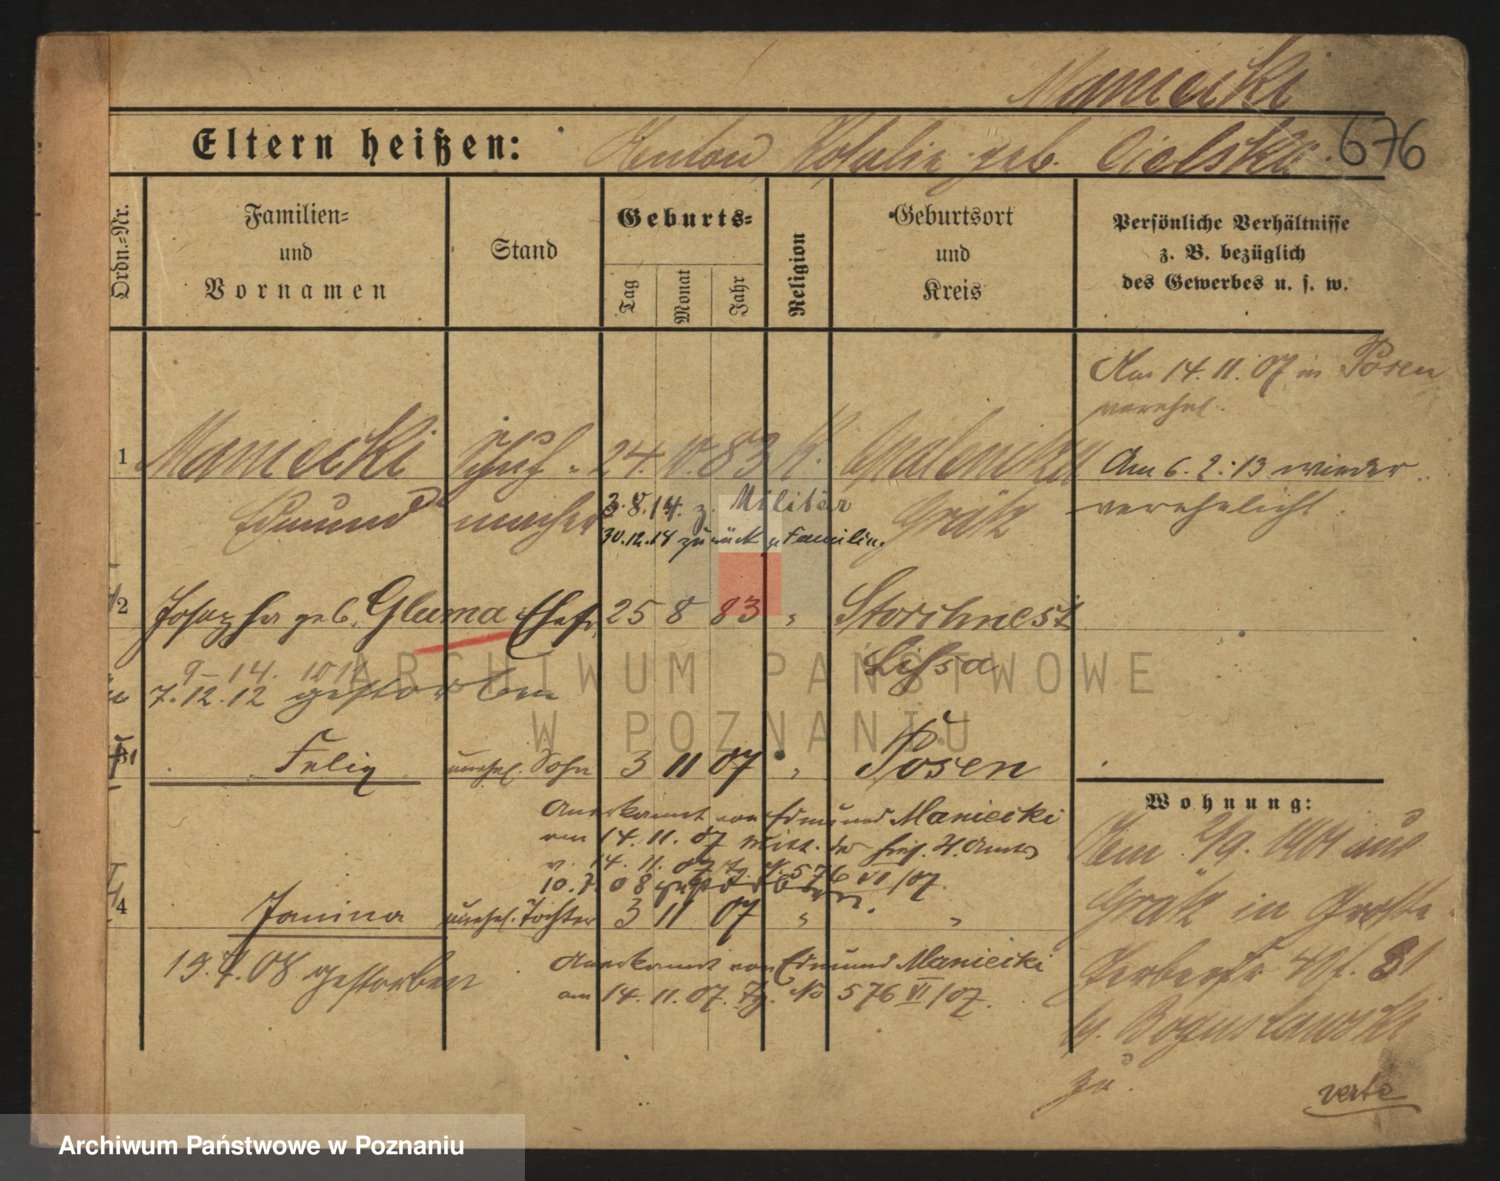 Maniecki
Eltern heißen: Anton, Rosalie geb. Cielska. 676
Ordn.=Nr.
Familien=
und
Vornamen
Stand
Geburts=
Tag
Monat
Jahr
Religion
Geburtsort
und
Kreis
Persönliche Verhältnisse
z. B. bezüglich
des Gewerbes u. s. w.
Am 14.11.07 in Posen
verehel.
1 Maniecki Schuh- 24. 83 K. Opalenitza
Am 6.2.13 wieder
Edmund macher 3.8.14. z. Militär Grätz
verehelicht.
30.12.18 zurück z. Familie.
2 Josepha geb. Gluma Ehefr. 25 8 83 " Storchnest
Lissa
7.12.12 gestorben
31 Felix unehel. Sohn 3 11 07 " Posen
Anerkannt von Edmund Maniecki
am 14.11.07 Mitt. der St. Amtes
v. 14.11.07 Tg. N. 576 VI/07.
10.7.08 gestorben.
4 Janina unehel. Tochter 3 11 07 " "
19.7.08 gestorben
Anerkannt von Edmund Maniecki
am 14.11.07. Tg. No 576 VI/07.
Wohnung:
Dem 2/9. 1901 aus
Grätz in Große
Gerberstr 40 31
Boguslawski
zu.
verte
ARCHIWUM PAŃSTWOWE
W POZNANIU
Archiwum Państwowe w Poznaniu